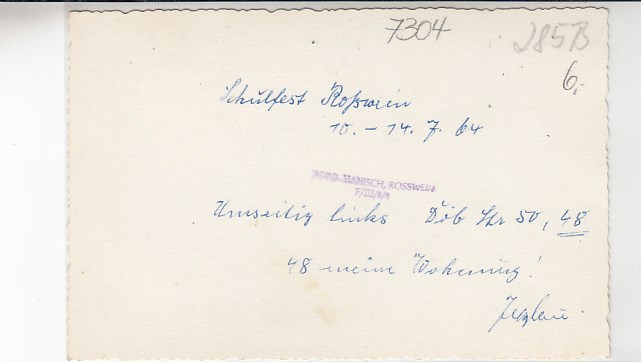 7304
285B
6,-
Schulfest Roßwein
10. – 14. 7. 64
FOTO-HANISCH, ROSSWEIN
F/III/8/8
Umseitig links Döb Str 50, 48
48 meine Wohnung!